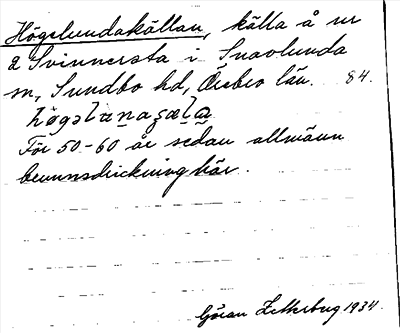 Högelundakällan, källa å nr
2 Svinnersta i Snavlunda
sn, Sundbo hd, Örebro län. 84.
För 50-60 år sedan allmänn
brunnsdrickning här.
Göran Zetterberg 1934.